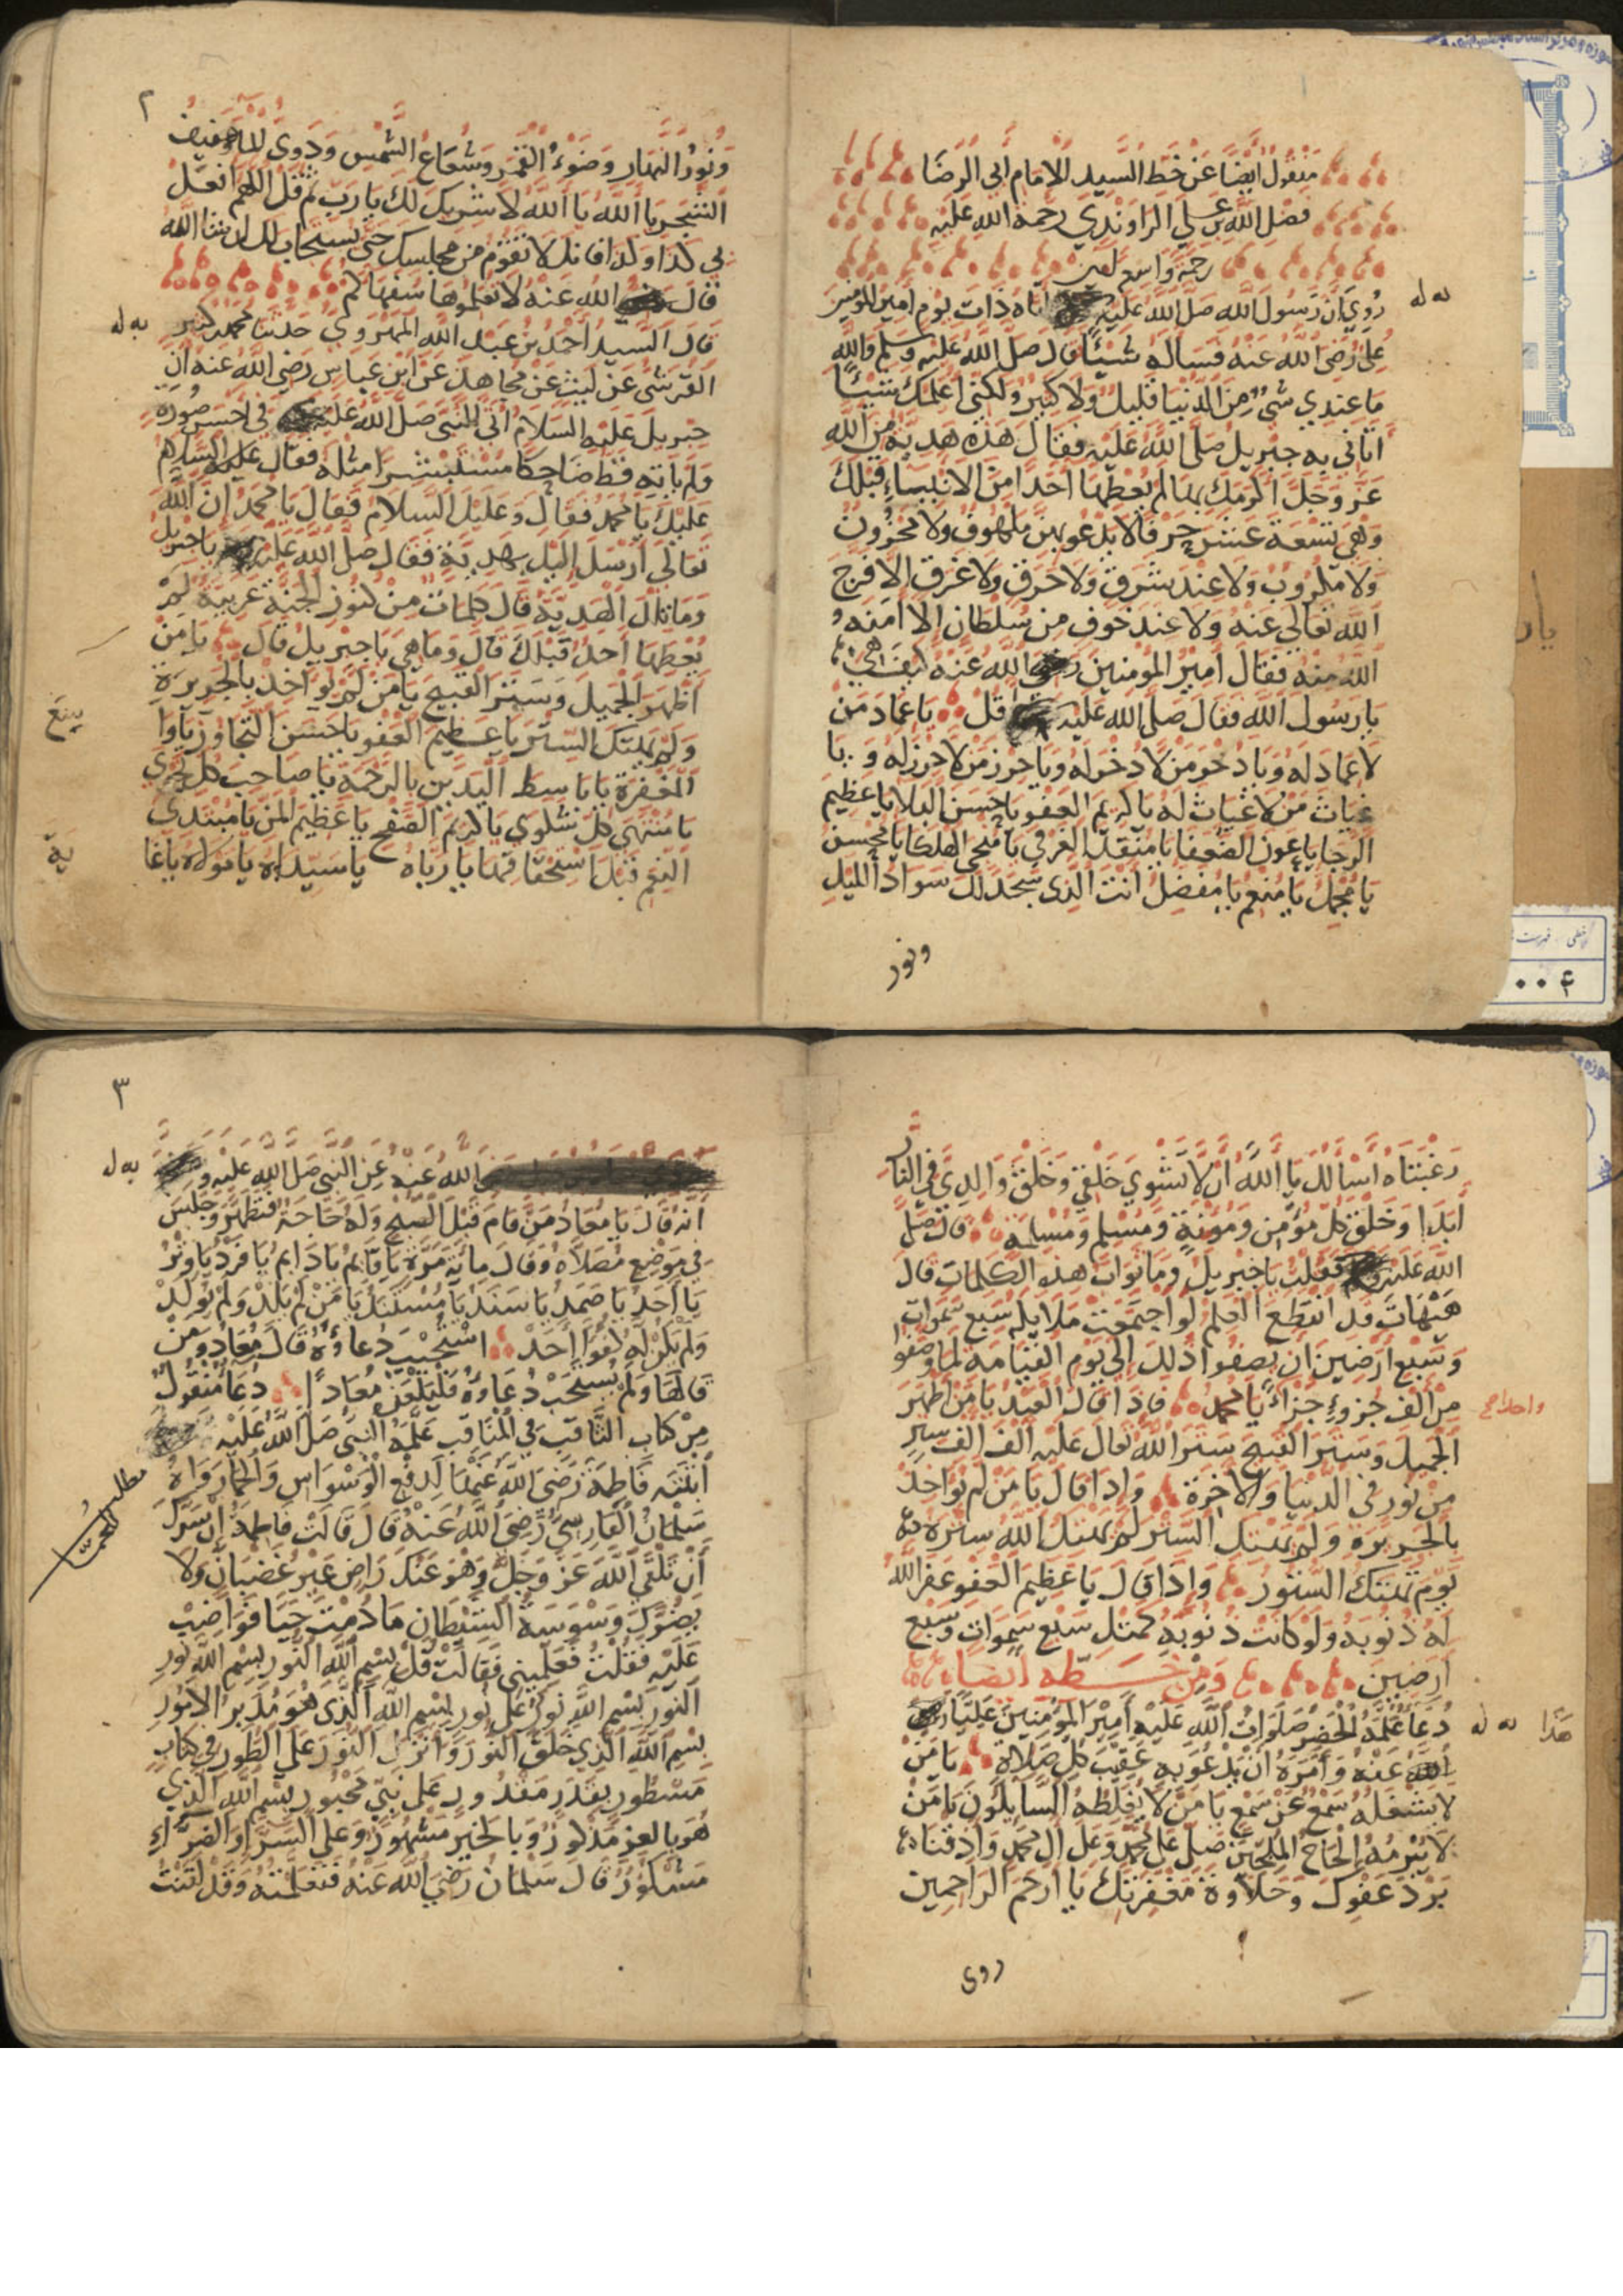 منقول ايضا عن خط السيد الامام ابي الرضا
فضل الله بن علي الراوندي رحمة الله عليه
رحمة واسعة
روي ان رسول الله صلى الله عليه اتاه ذات يوم امير المومنين
علي رضي الله عنه فساله شيئا قال صلى الله عليه وسلم والله
ما عندي شئ من الدنيا قليل ولا كثير ولكني اعلمك شيئا
اتاني به جبريل صلى الله عليه فقال هذه هدية من الله
عز وجل اكرمك بها لم يعطها احدا من الانبياء قبلك
وهي تسعة عشر حرفا لا يدعو بهن ملهوف ولا محزون
ولا مكروب ولا عند سرق ولا حرق ولا غرق الا فرج
الله تعالى عنه ولا عند خوف من سلطان الا امنه
الله منه فقال امير المومنين رضي الله عنه كيف هي
يا رسول الله فقال صلى الله عليه قل يا عماد من
لا عماد له ويا ذخر من لا ذخر له ويا حرز من لا حرز له و يا
غياث من لا غياث له يا كريم العفو يا حسن البلا يا عظيم
الرجا يا عون الضعفا يا منقذ الغرقى يا منجي الهلكا يا محسن
يا مجمل يا منعم يا مفضل انت الذي سجد لك سواد الليل
ونور
٢
ونور النهار وضوء القمر وشعاع الشمس ودوي الماء وحفيف
الشجر يا الله يا الله لا شريك لك يا رب ثم قل اللهم افعل
بي كذا وكذا فانك لا تقوم من مجلسك حتى يستجاب لك ان شا الله
قال رضي الله عنه لا تعلموها سفهاكم
قال السيد احمد بن عبد الله الهروي حدثنا محمد كثير
القرشي عن ليث عن مجاهد عن ابن عباس رضي الله عنه ان
جبريل عليه السلام اتى النبي صلى الله عليه في احسن صورة
ولم ياته قط ضاحكا مستبشرا مثله فقال عليه السلام
عليك يا محمد فقال وعليك السلام فقال يا محمد ان الله
تعالى ارسل اليك بهدية فقال صلى الله عليه يا جبريل
وما تلك الهدية قال كلمات من كنوز الجنة عربية لم
يعطها احد قبلك قال وما هي يا جبريل قال يا من
اظهر الجميل وستر القبيح يا من لم يواخذ بالجريرة
ولم يهتك الستر يا عظيم العفو يا حسن التجاوز يا وا
سع
المغفرة يا باسط اليدين بالرحمة يا صاحب كل نجوى
يا منتهى كل شكوى يا كريم الصفح يا عظيم المن يا مبتدي
النعم قبل استحقاقها يا رباه يا سيداه يا مولاه يا غا
ية
رغبتاه اسالك يا الله ان لا تشوي خلقي وخلق والدي في النار
ابدا وخلق كل مؤمن ومؤمنة ومسلم ومسلمة قال صلى
الله عليه فقلت يا جبريل وما ثواب هذه الكلمات قال
هيهات قد انقطع العلم لو اجتمعت ملايكة سبع سموات
وسبع ارضين ان يصفوا ذلك الى يوم القيامة لما وصفوا
من الف جزوء جزاء يا محمد فاذا قال العبد يا من اظهر
الجميل وستر القبيح ستر الله تعالى عليه الف الف ستر
من نور في الدنيا والاخرة واذا قال يا من لم يواخذ
بالجريرة ولم يهتك الستر لم يهتك الله ستره
يوم تهتك الستور واذا قال يا عظيم العفو غفر الله
له ذنوبه ولو كانت ذنوبه كمثل سبع سموات وسبع
ارضين ومن خطه ايضا
دعا علمه الخضر صلوات الله عليه امير المؤمنين عليا رضي
الله عنه وامره ان يدعو به عقيب كل صلاة يا من
لا يشغله سمع عن سمع يا من لا يغلطه السايلون يا من
لا يبرمه الحاح الملحين صل على محمد وعلى ال محمد واذقنا
برد عفوك وحلاوة مغفرتك يا ارحم الراحمين
هذا
روى
٣
الله عنه عن النبي صلى الله عليه و
انه قال يا معاذ من قام قبل الصبح وله حاجة فتطهر وجلس
في موضع مصلاه وقال ماية مرة يا قايم يا دايم يا فرد يا وتر
يا احد يا صمد يا سند يا مستند يا من لم يلد ولم يولد
ولم يكن له كفوا احد استجيب دعاؤه قال معاذ ومن
قالها ولم يستجب دعاؤه فليلعن معاذا دعا منقول
من كتاب الثاقب في المناقب علمه النبي صلى الله عليه
ابنته فاطمة رضي الله عنها لدفع الوسواس والحمى رواه
سلمان الفارسي رضي الله عنه قال قالت فاطمة ان سرك
ان تلقى الله عز وجل وهو عنك راض غير غضبان ولا
يضرك وسوسة الشيطان ما دمت حيا فواضب
عليه فقلت فعلميني فقالت قل بسم الله النور بسم الله نور
النور بسم الله نور على نور بسم الله الذي هو مدبر الامور
بسم الله الذي خلق النور وانزل النور على الطور في كتاب
مسطور بقدر مقدور على نبي محبور بسم الله الذي
هو بالعز مذكور وبالخير مشهور وعلى السراء والضراء
مشكور قال سلمان رضي الله عنه فتعلمته وقد لقنت
مطلب الحمى